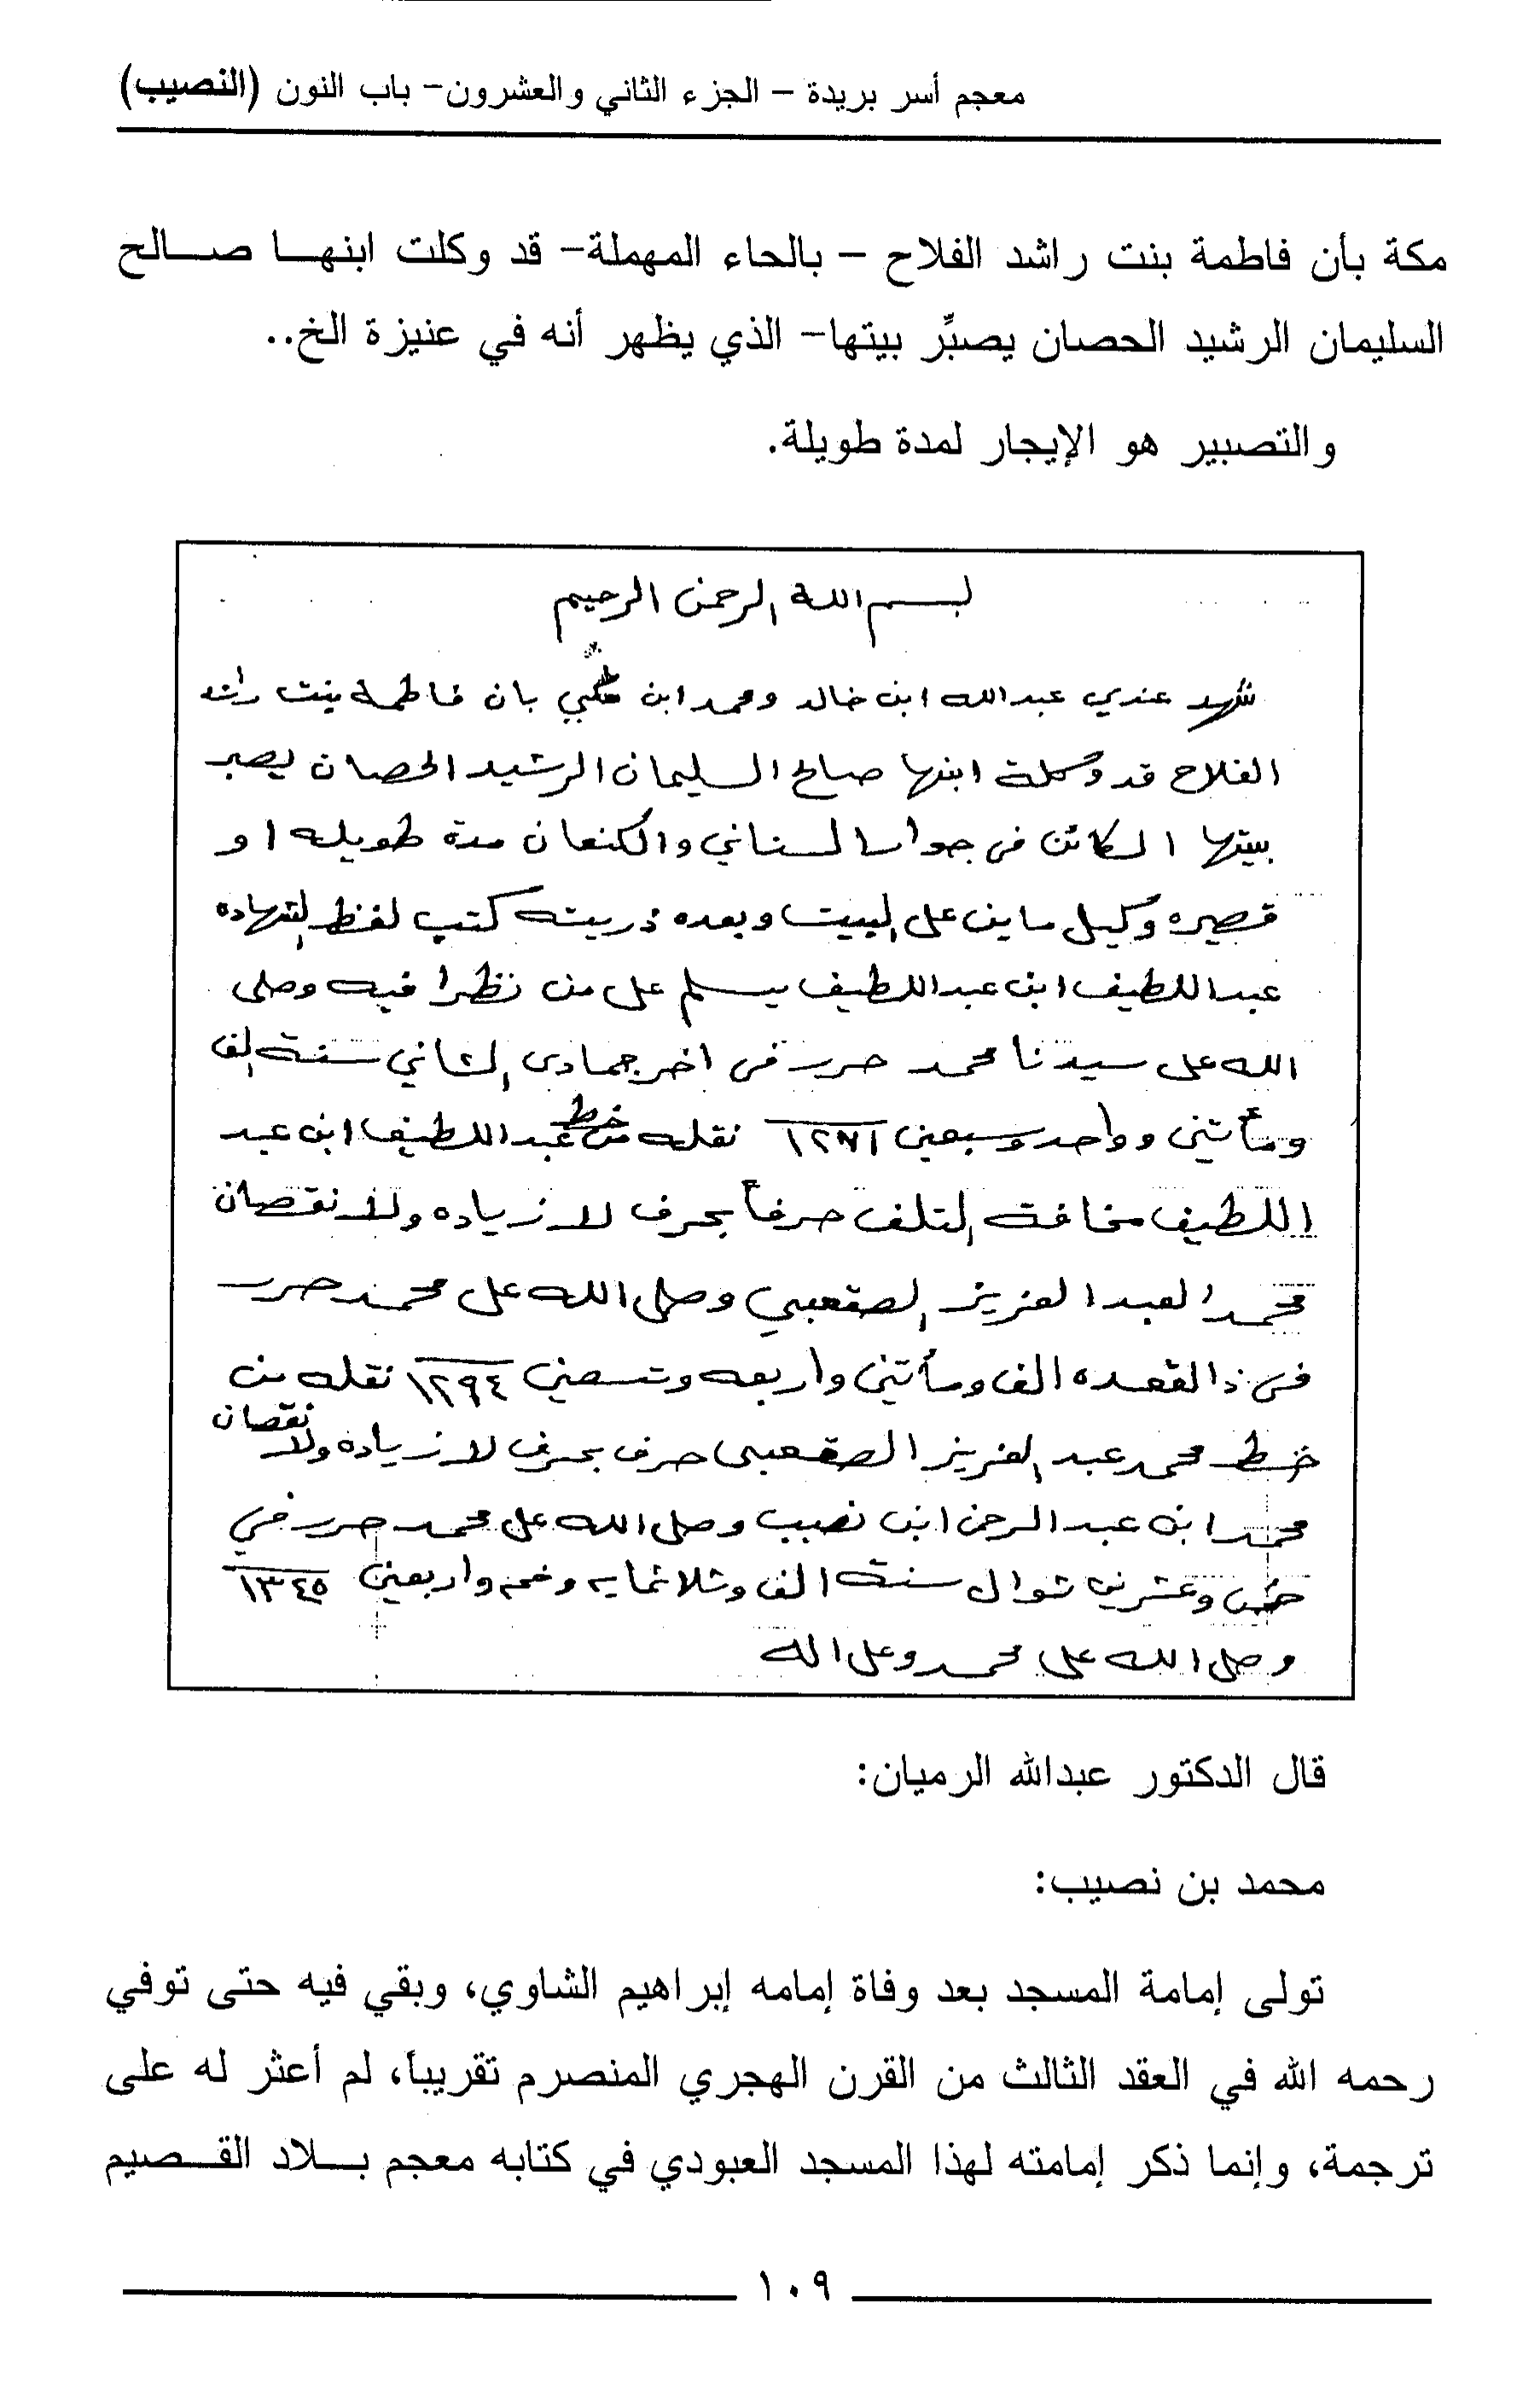 معجم أسر بريدة – الجزء الثاني والعشرون– باب النون (النصيب)
مكة بأن فاطمة بنت راشد الفلاح – بالحاء المهملة– قد وكلت ابنهـــا صـــالح
السليمان الرشيد الحصان يصبِّر بيتها– الذي يظهر أنه في عنيزة الخ..
والتصبير هو الإيجار لمدة طويلة.
بسم الله الرحمن الرحيم
شهد عندي عبدالله ابن خالد ومحمد ابن بان فاطمة بنت راشد
الفلاح قد وكلة ابنها صالح السليمان الرشيد الحصان يصبر
بيتها الكائن في جوار السناني والكنعان مدة طويله او
قصيره وكيل ماين على البيت وبعده ذريته كتب لفظ الشهاده
عبداللطيف ابن عبداللطيف يسلم على من نظرا فيه وصلى
الله على سيدنا محمد حرر في اخر جمادى الثاني سنة الف
ومأتين وواحد وسبعين ١٢٧١ نقله من خط عبداللطيف ابن عبد
اللطيف مخافة التلف حرفاً بحرف لا زياده ولا نقصان
محمد العبد العزيز الصقعبي وصلى الله على محمد حرر
في ذا القعده الف ومأتين واربعه وتسعين ١٢٩٤ نقله من
خط محمد عبد العزيز الصقعبي حرف بحرف لا زياده ولا نقصان
محمد ابن عبد الرحمن ابن نصيب وصلى الله على محمد حرر في
خمس وعشرين شوال سنة الف وثلاثمايه وخمس واربعين ١٣٤٥
وصلى الله على محمد وعلى اله
قال الدكتور عبدالله الرميان:
محمد بن نصيب:
تولى إمامة المسجد بعد وفاة إمامه إبراهيم الشاوي، وبقي فيه حتى توفي
رحمه الله في العقد الثالث من القرن الهجري المنصرم تقريباً، لم أعثر له على
ترجمة، وإنما ذكر إمامته لهذا المسجد العبودي في كتابه معجم بـــلاد القـــصيم
١٠٩